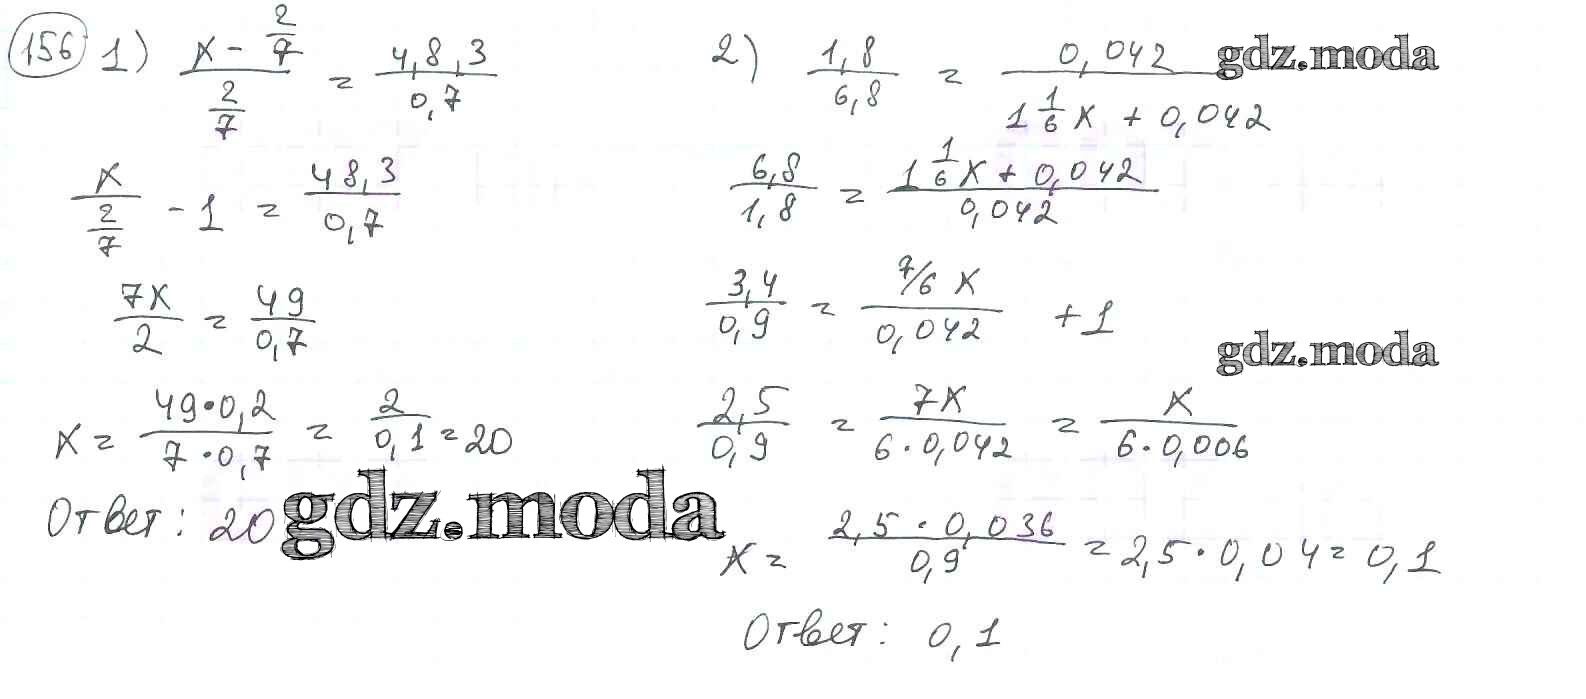 156 1) (x - 2/7)/(2/7) = 4,8,3/0,7
x/(2/7) - 1 = 48,3/0,7
7x/2 = 49/0,7
x = 49·0,2/7·0,7 = 2/0,1 = 20
Ответ: 20
gdz.moda
2) 1,8/6,8 = 0,042/(1 1/6 x + 0,042)
gdz.moda
6,8/1,8 = (1 1/6 x + 0,042)/0,042
3,4/0,9 = (7/6 x)/0,042 + 1
gdz.moda
2,5/0,9 = 7x/6·0,042 = x/6·0,006
x = 2,5·0,036/0,9 = 2,5·0,04 = 0,1
Ответ: 0,1